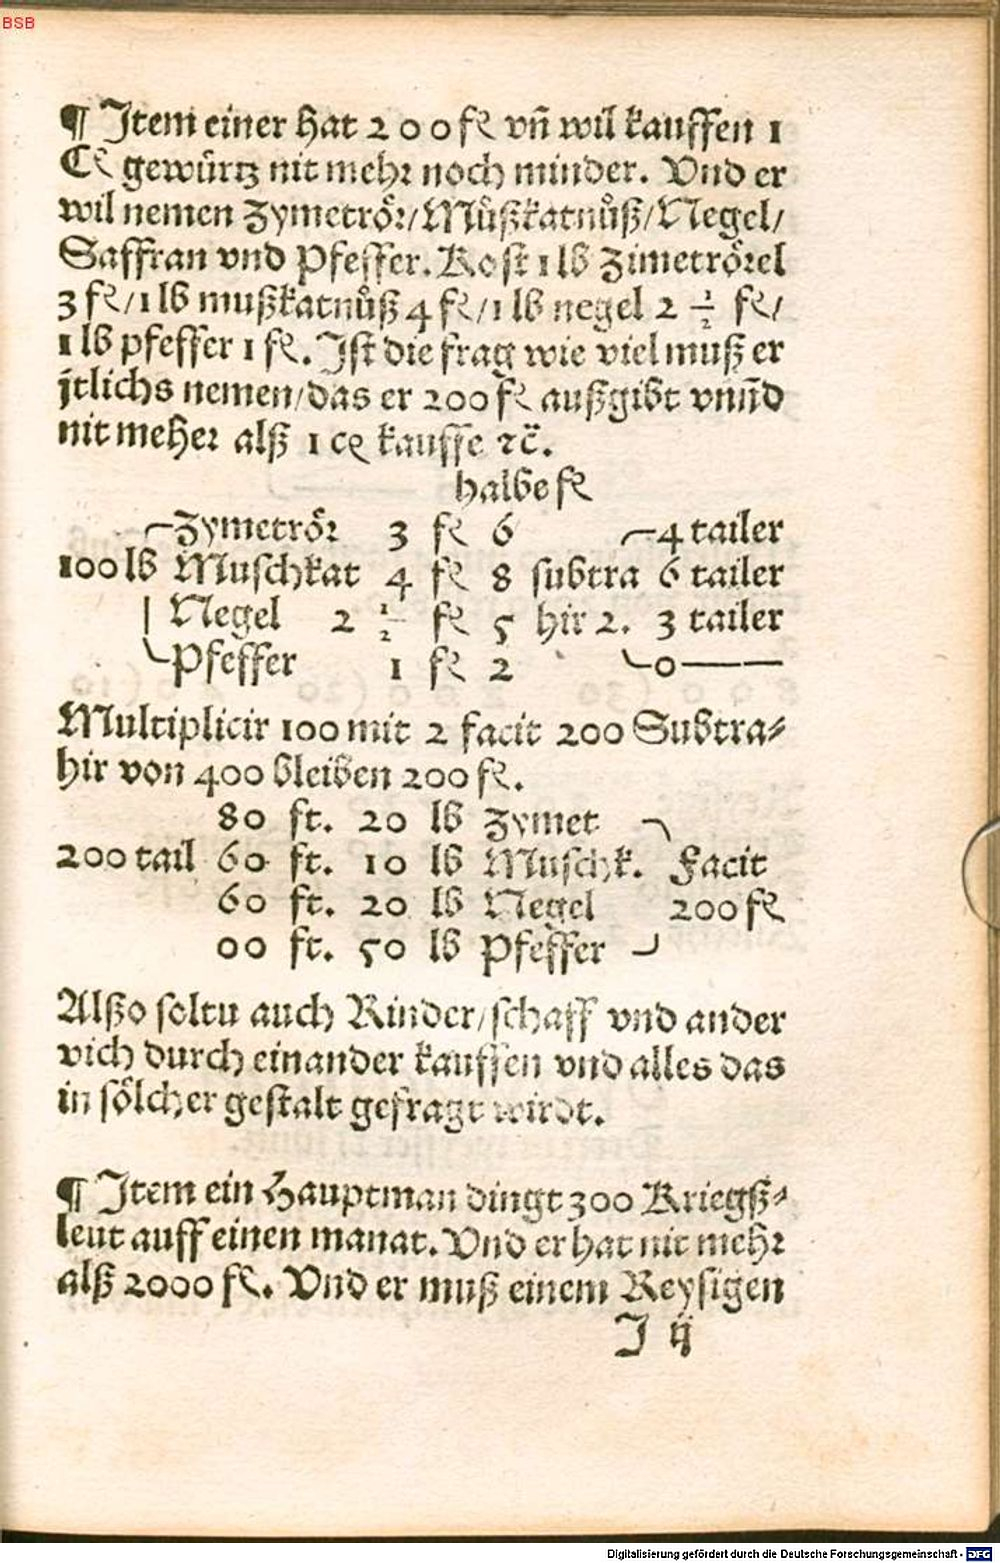 BSB
¶ Item einer hat 200 fl vñ wil kauffen 1
Cꝭ gewürtz nit mehr noch minder. Vnd er
wil nemen Zymetrör/Můßkatnůß/Negel/
Saffran vnd Pfeffer. Kost 1 lb Zimetrörel
3 fl/1 lb mußkatnůß 4 fl/1 lb negel 2 1/2 fl/
1 lb pfeffer 1 fl. Ist die frag wie viel muß er
jtlichs nemen/das er 200 fl außgibt vnñd
nit meher alß 1 cꝭ kauffe ꝛc̈.
halbe fl
Zymetrör 3 fl 6 4 tailer
100 lb Muschkat 4 fl 8 subtra 6 tailer
Negel 2 1/2 fl 5 hir 2. 3 tailer
Pfeffer 1 fl 2 0——
Multiplicir 100 mit 2 facit 200 Subtra⸗
hir von 400 bleiben 200 fl.
80 ft. 20 lb Zymet
200 tail 60 ft. 10 lb Muschk. Facit
60 ft. 20 lb Negel 200 fl
00 ft. 50 lb Pfeffer
Alßo soltu auch Rinder/schaff vnd ander
vich durch einander kauffen vnd alles das
in sölcher gestalt gefragt wirdt.
¶ Item ein Hauptman dingt 300 Kriegß⸗
leut auff einen manat. Vnd er hat nit mehr
alß 2000 fl. Vnd er muß einem Reysigen
J ij
Digitalisierung gefördert durch die Deutsche Forschungsgemeinschaft - DFG